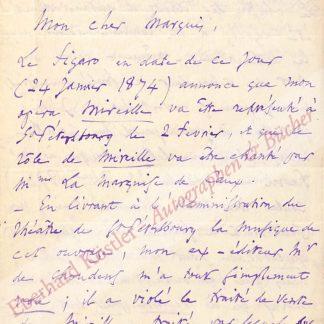 Mon cher Marquis,
Le Figaro en date de ce jour
(24 Janvier 1874) annonce que mon
opéra, Mireille va être représenté à
St Pétersbourg le 2 février, et que le
rôle de Mireille va être chanté par
Mme La Marquise de Caux.
– En livrant à l'administration du
théâtre de St Pétersbourg la musique de
cet ouvrage, mon ex-éditeur Mr
de Choudens m'a tout simplement
volé; il a violé le traité de vente
de Mireille, traité
Eberhard Köstler Autographen & Bücher